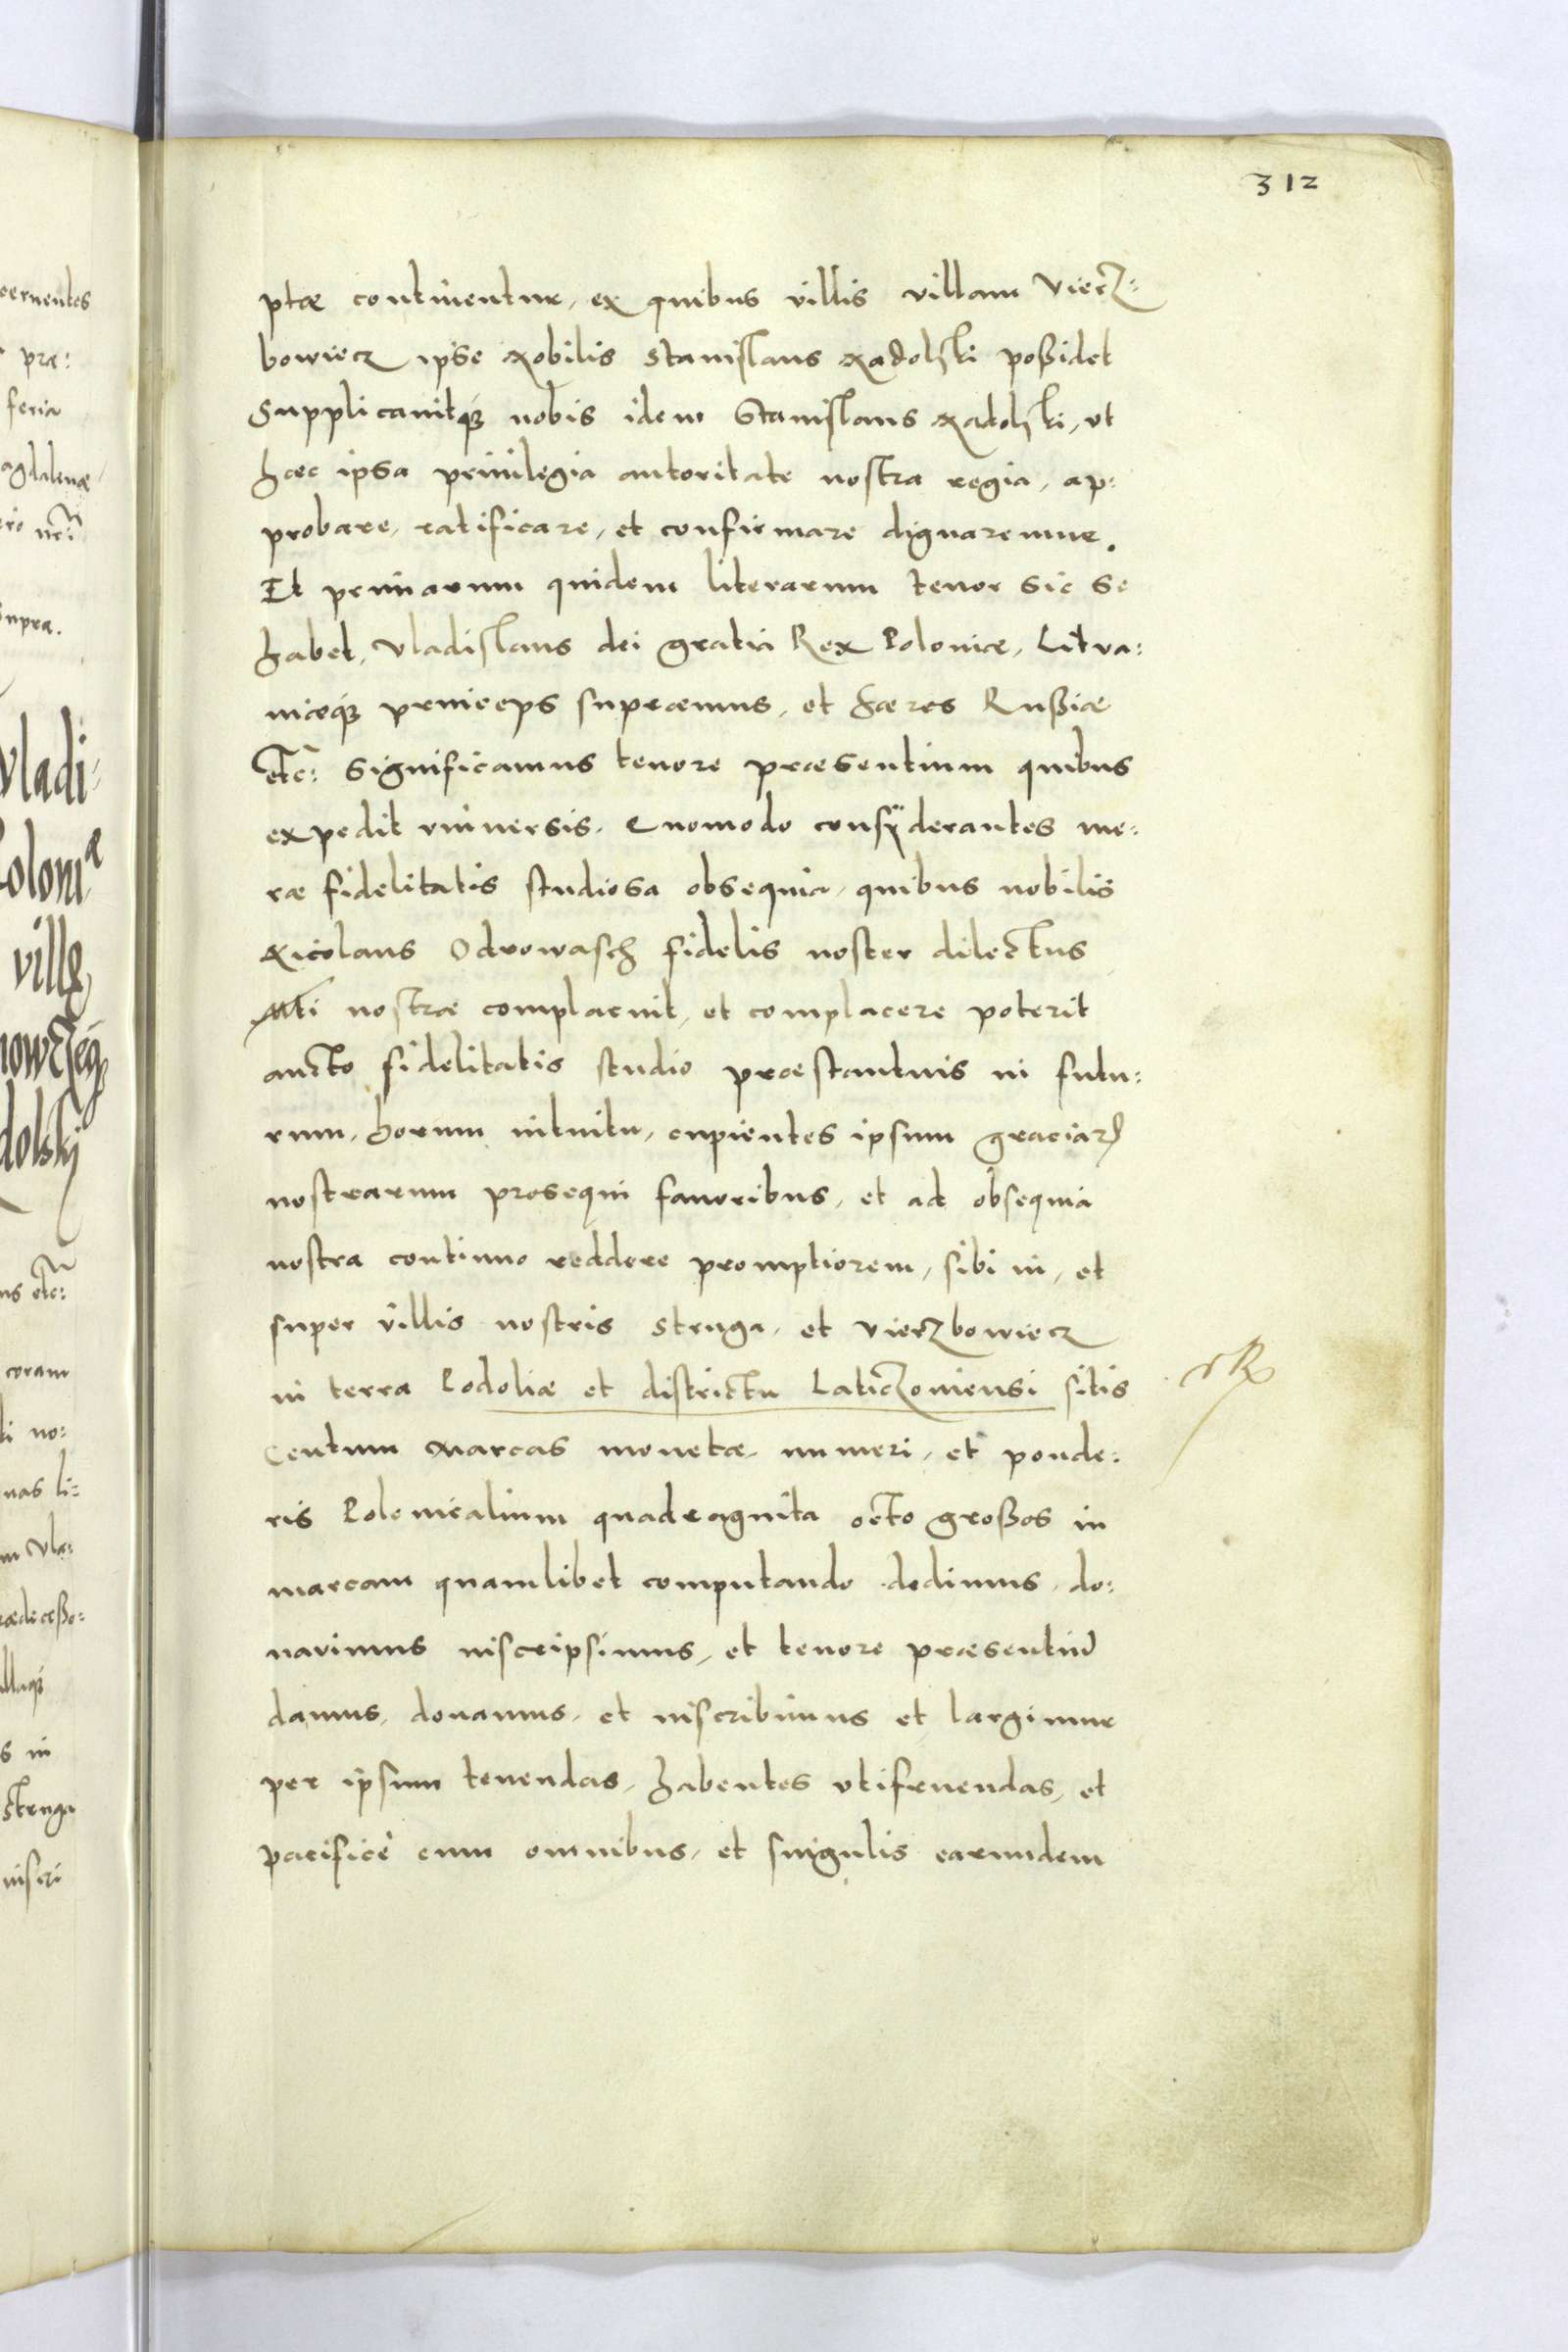 312
ptæ continentur, ex quibus villis villam Vierz-
bowiecz ipse Nobilis Stanislaus Nadolski possidet
Supplicauitque nobis idem Stanislaus Nadolski, vt
hæc ipsa priuilegia autoritate nostra regia, ap-
probare, ratificare, et confirmare dignaremur.
Et primarum quidem literarum tenor sic se
habet, Vladislaus dei gratia Rex Poloniæ, Litva-
niæque princeps supræmus, et hæres Russiæ
etc: Significamus tenore præsentium quibus
expedit vniuersis. Quomodo consÿderantes me-
ræ fidelitatis studiosa obsequia, quibus nobilis
Nicolaus Odrowasch fidelis noster dilectus
Mti nostræ complacuit, et complacere poterit
aucto fidelitatis studio præstantius in futu-
rum, horum intuitu, cupientes ipsum graciar
nostrarum prosequi fauoribus, et ad obsequia
nostra continuo reddere promptiorem, sibi in, et
super villis nostris Struga, et Vierzbowiecz
in terra Podoliæ et districtu Laticzouiensi sitis
Centum marcas monetæ, numeri, et ponde-
ris Polonicalium quadraginta octo grossos in
marcam quamlibet computando dedimus, do-
nauimus inscripsimus, et tenore præsentiu
damus, donamus, et inscribimus et largimur
per ipsum tenendas, habentes vtifruendas, et
pacificè cum omnibus, et singulis earundem